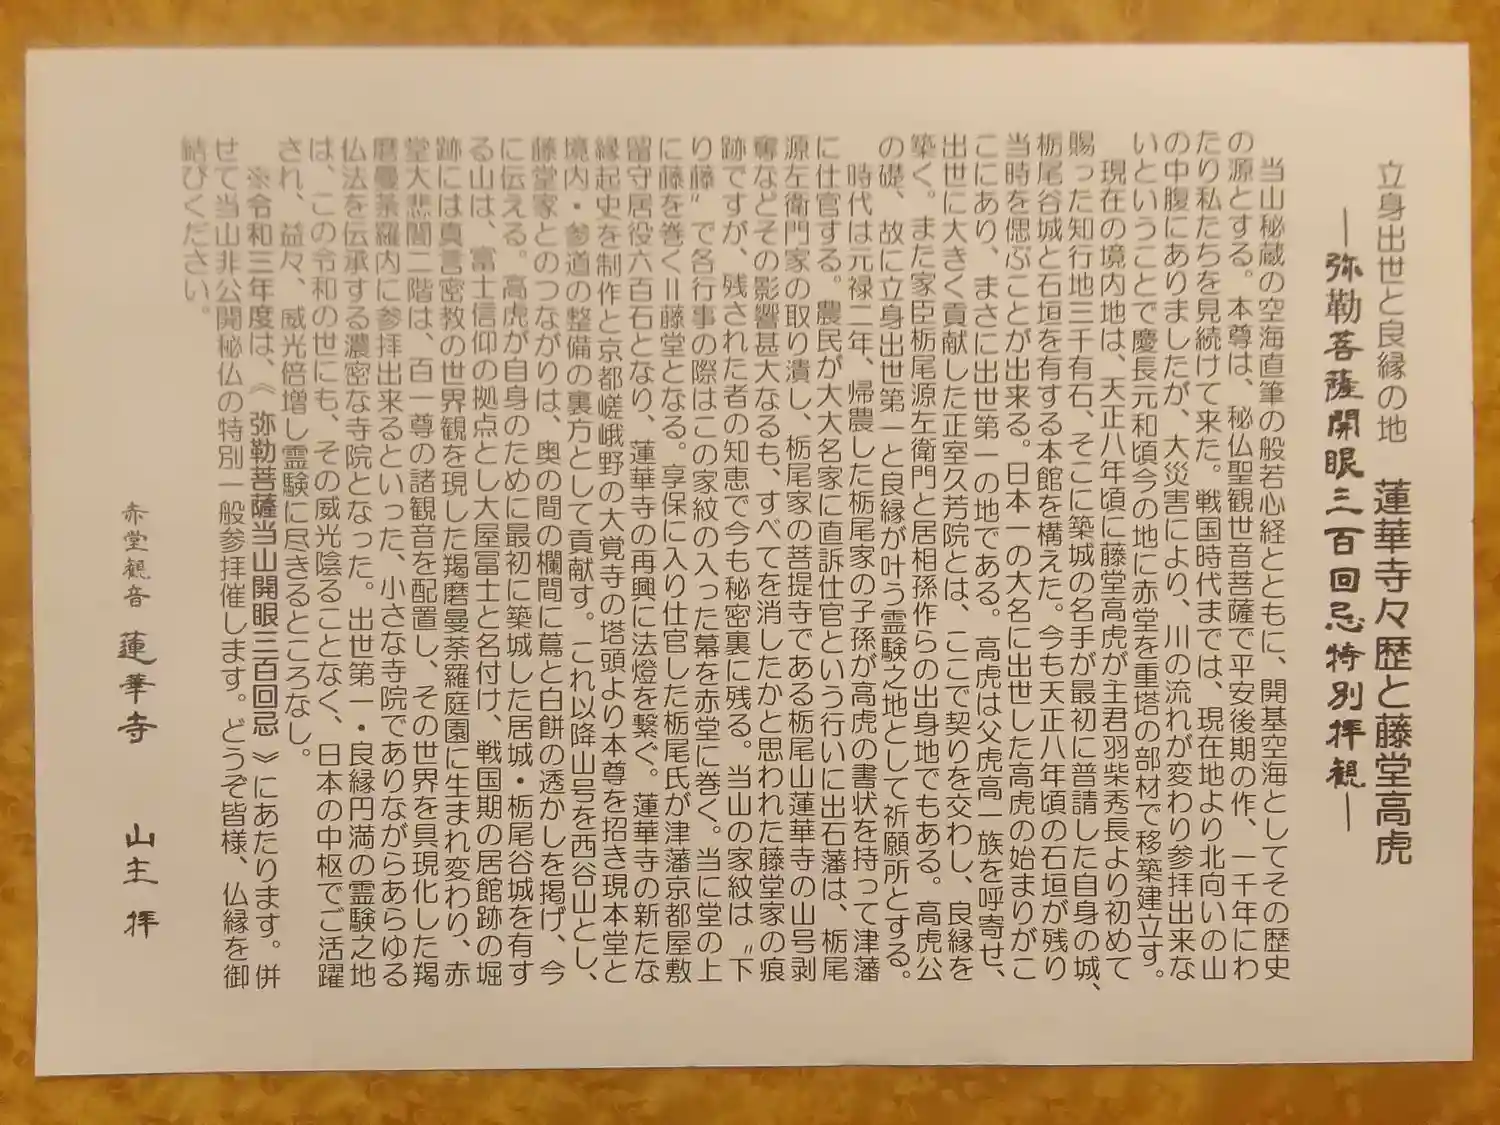 立身出世と良縁の地　蓮華寺々歴と藤堂高虎
―弥勒菩薩開眼三百回忌特別拝観―
当山秘蔵の空海直筆の般若心経とともに、開基空海としてその歴史
の源とする。本尊は、秘仏聖観世音菩薩で平安後期の作、一千年にわ
たり私たちを見続けて来た。戦国時代までは、現在地より北向いの山
の中腹にありましたが、大災害により、川の流れが変わり参拝出来な
いということで慶長元和頃今の地に赤堂を重塔の部材で移築建立す。
現在の境内地は、天正八年頃に藤堂高虎が主君羽柴秀長より初めて
賜った知行地三千有石、そこに築城の名手が最初に普請した自身の城、
栃尾谷城と石垣を有する本館を構えた。今も天正八年頃の石垣が残り
当時を偲ぶことが出来る。日本一の大名に出世した高虎の始まりがこ
こにあり、まさに出世第一の地である。高虎は父虎高一族を呼寄せ、
出世に大きく貢献した正室久芳院とは、ここで契りを交わし、良縁を
築く。また家臣栃尾源左衛門と居相孫作らの出身地でもある。高虎公
の礎、故に立身出世第一と良縁が叶う霊験之地として祈願所とする。
時代は元禄二年、帰農した栃尾家の子孫が高虎の書状を持って津藩
に仕官する。農民が大大名家に直訴仕官という行いに出石藩は、栃尾
源左衛門家の取り潰し、栃尾家の菩提寺である栃尾山蓮華寺の山号剥
奪などその影響甚大なるも、すべてを消したかと思われた藤堂家の痕
跡ですが、残された者の知恵で今も秘密裏に残る。当山の家紋は〝下
り藤〟で各行事の際はこの家紋の入った幕を赤堂に巻く。当に堂の上
に藤を巻く＝藤堂となる。享保に入り仕官した栃尾氏が津藩京都屋敷
留守居役六百石となり、蓮華寺の再興に法燈を繋ぐ。蓮華寺の新たな
縁起史を制作と京都嵯峨野の大覚寺の塔頭より本尊を招き現本堂と
境内・参道の整備の裏方として貢献す。これ以降山号を西谷山とし、
藤堂家とのつながりは、奥の間の欄間に蔦と白餅の透かしを掲げ、今
に伝える。高虎が自身のために最初に築城した居城・栃尾谷城を有す
る山は、富士信仰の拠点とし大屋富士と名付け、戦国期の居館跡の堀
跡には真言密教の世界観を現した羯磨曼荼羅庭園に生まれ変わり、赤
堂大悲閣二階は、百一尊の諸観音を配置し、その世界を具現化した羯
磨曼荼羅内に参拝出来るといった、小さな寺院でありながらあらゆる
仏法を伝承する濃密な寺院となった。出世第一・良縁円満の霊験之地
は、この令和の世にも、その威光陰ることなく、日本の中枢でご活躍
され、益々、威光倍増し霊験に尽きるところなし。
※令和三年度は、《弥勒菩薩当山開眼三百回忌》にあたります。併
せて当山非公開秘仏の特別一般参拝催します。どうぞ皆様、仏縁を御
結びください。
赤堂観音　蓮華寺　山主　拝